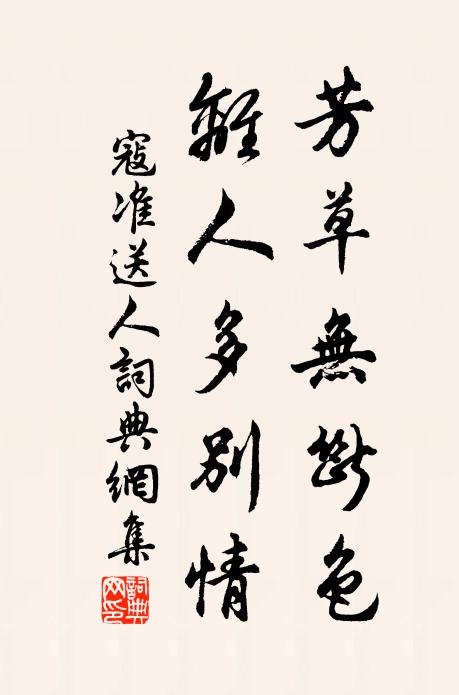 芳草無斷色
離人多別情
寇准送人詞典網集
詞典網印